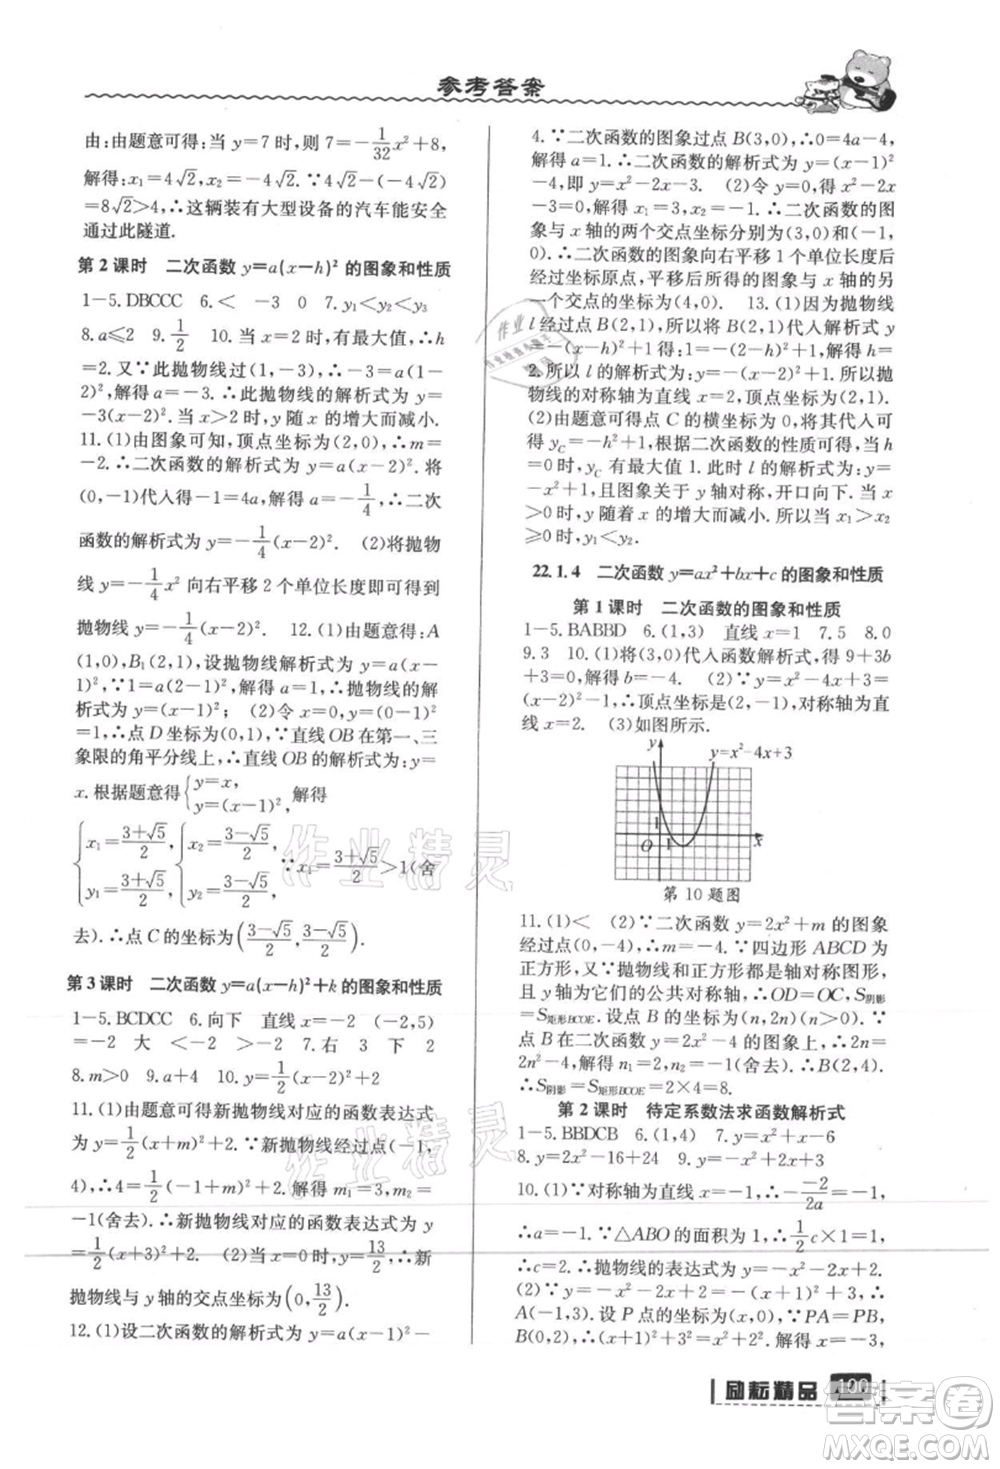 参考答案
由:由题意可得:当 y=7 时,则 7=-1/32x²+8,
解得:x₁=4√2,x₂=-4√2.∵4√2-(-4√2)
=8√2>4,∴这辆装有大型设备的汽车能安全
通过此隧道.
第 2 课时 二次函数 y=a(x-h)² 的图象和性质
1-5.DBCCC 6.< -3 0 7.y₁<y₂<y₃
8.a≤2 9.1/2 10.当 x=2 时,有最大值,∴h
=2.又∵此抛物线过(1,-3),∴-3=a(1-
2)²,解得 a=-3.∴此抛物线的解析式为 y=
-3(x-2)².当 x>2 时,y 随 x 的增大而减小.
11.(1)由图象可知,顶点坐标为(2,0),∴m=
-2.∴二次函数的解析式为 y=a(x-2)².将
(0,-1)代入得-1=4a,解得 a=-1/4.∴二次
函数的解析式为 y=-1/4(x-2)². (2)将抛物
线 y=-1/4x² 向右平移 2 个单位长度即可得到
抛物线 y=-1/4(x-2)². 12.(1)由题意得:A
(1,0),B₁(2,1),设抛物线的解析式为 y=a(x
-1)²,∵1=a(2-1)²,解得 a=1.∴抛物线的解
析式为 y=(x-1)²; (2)令 x=0,得 y=(0-1)²
=1.∴点 D 坐标为(0,1),∵直线 OB 在第一、三
象限的角平分线上,∴直线 OB 的解析式为 y=
x.根据题意得{y=x, y=(x-1)²,解得
{x₁=(3+√5)/2, y₁=(3+√5)/2, {x₂=(3-√5)/2, y₂=(3-√5)/2. ∵x₁=(3+√5)/2>1(舍
去).∴点 C 的坐标为((3-√5)/2,(3-√5)/2).
第 3 课时 二次函数 y=a(x-h)²+k 的图象和性质
1-5.BCDCC 6.向下 直线 x=-2 (-2,5)
=-2 大 <-2 >-2 7.右 3 下 2
8.m>0 9.a+4 10.y=-1/2(x+2)²+1
11.(1)由题意可得新抛物线对应的函数表达式
为 y=1/2(x+m)²+2.∵新抛物线经过点(-1,
4),∴4=1/2(-1+m)²+2.解得 m₁=3,m₂=
-1(舍去).∴新抛物线对应的函数表达式为 y
=1/2(x+3)²+2. (2)当 x=0 时,y=13/2,∴新
抛物线与 y 轴的交点坐标为(0,13/2).
12.(1)设二次函数的解析式为 y=a(x-1)²-
4.∵二次函数的图象过点 B(3,0),∴0=4a-4,
解得 a=1.∴二次函数的解析式为 y=(x-1)²
-4,即 y=x²-2x-3. (2)令 y=0,得 x²-2x-
3=0,解方程,得 x₁=3,x₂=-1.∴二次函数的图
象与 x 轴的两个交点坐标分别为(3,0)和(-1,
0).∴二次函数的图象向右平移 1 个单位长度后
经过坐标原点,平移后所得的图象与 x 轴的
另一个交点的坐标为(4,0). 13.(1)因为抛物线
l 经过点 B(2,1),所以将 B(2,1)代入解析式 y
=-(x-h)²+1 得:1=-(2-h)²+1,解得 h=
2.所以 l 的解析式为 y=-(x-2)²+1,所以抛
物线的对称轴为直线 x=2,顶点坐标为(2,1).
(2)由题意得点 C 的横坐标为 0,将其代入可
得 y_C=-h²+1,根据二次函数的性质可得,当 h
=0 时,y_C 有最大值 1.此时 l 的解析式为 y=
-x²+1,且图象关于 y 轴对称,开口向下.当 x
>0 时,y 随着 x 的增大而减小.所以,当 x₁>x₂
≥0 时,y₁<y₂.
22.1.4 二次函数 y=ax²+bx+c 的图象和性质
第 1 课时 二次函数的图象和性质
1-5.BABBD 6.(1,3) 直线 x=1 7.5 8.0
9.3 10.(1)将(3,0)代入函数解析式,得 9+3b
+3=0.解得 b=-4. (2)∵y=x²-4x+3=
(x-2)²-1,∴顶点坐标是(2,-1),对称轴为直
线 x=2. (3)如图所示.
y y=x²-4x+3
1
O 1 x
第 10 题图
11.(1)< (2)∵二次函数 y=2x²+m 的图象
经过点(0,-4),∴m=-4.∵四边形 ABCD 为
正方形,又∵抛物线和正方形都是轴对称图形,
且 y 轴为它们的公共对称轴,∴OD=OC,S阴影
=S矩形BCOE.设点 B 的坐标为(n,2n)(n>0).∵
点 B 在二次函数 y=2x²-4 的图象上,∴2n=
2n²-4.解得 n₁=2,n₂=-1(舍去).∴B(2,4).
∴S阴影=S矩形BCOE=2×4=8.
第 2 课时 待定系数法求函数解析式
1-5.BBDCB 6.(1,4) 7.y=x²+x-6
8.y=2x²-16+24 9.y=-x²+4x-3
10.(1)∵对称轴为直线 x=-1,∴-(-2)/2a=-1,
∴a=-1.∵△ABO 的面积为 1,∴1/2c×1=1,
∴c=2.∴抛物线的表达式为 y=-x²-2x+2.
(2)∵y=-x²-2x+2=-(x+1)²+3,∴
A(-1,3).设 P 点的坐标为(x,0),∵PA=PB,
B(0,2),∴(x+1)²+3²=x²+2².解得 x=-3,
励耘精品 100
作业精灵
作业精灵
答案圈
MXQE.COM